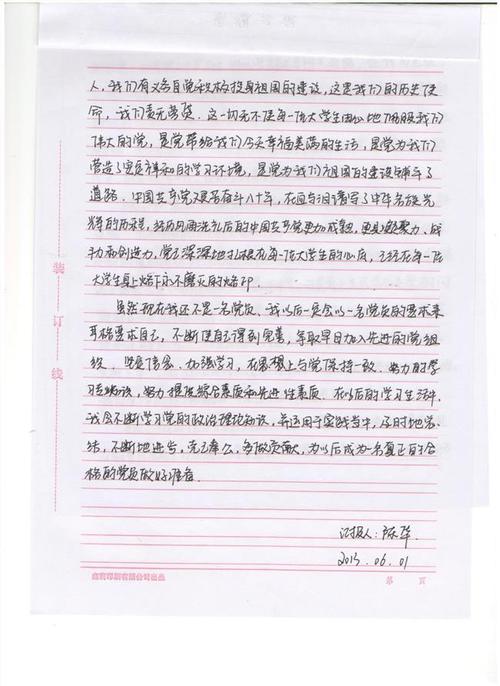 人,我们有义务自觉积极投身祖国的建设,这是我们的历史使
命,我们责无旁贷。这一切无不使每一位大学生由心地佩服我们
伟大的党,是党带给我们今天幸福美满的生活,是党为我们
营造了宽良祥和的学习环境,是党为我们祖国的建设铺平了
道路。中国共产党艰苦奋斗八十年,在血与泪谱写了中华名族光
辉的历程,经历风雨洗礼后的中国共产党更加成熟,更具凝聚力、战
斗力和创造力,党已深深地扎根在每一位大学生的心底,已经在每一位
大学生身上烙下永不磨灭的烙印。
虽然现在我还不是一名党员,我以后一定会以一名党员的要求来
严格要求自己,不断使自己得到完善,争取早日加入先进的党组
织。坚定信念,加强学习,在思想上与党保持一致。努力的学
习专业知识,努力提及综合素质和先进性素质。在以后的学习生活中,
我会不断学习党的政治理论知识,并运用于实践当中,及时地总
结,不断地进步,克己奉公,多做贡献,为以后成为一名真正的合
格的党员做好准备。
汇报人:陈华
2013.06.01
装
订
线
第 页